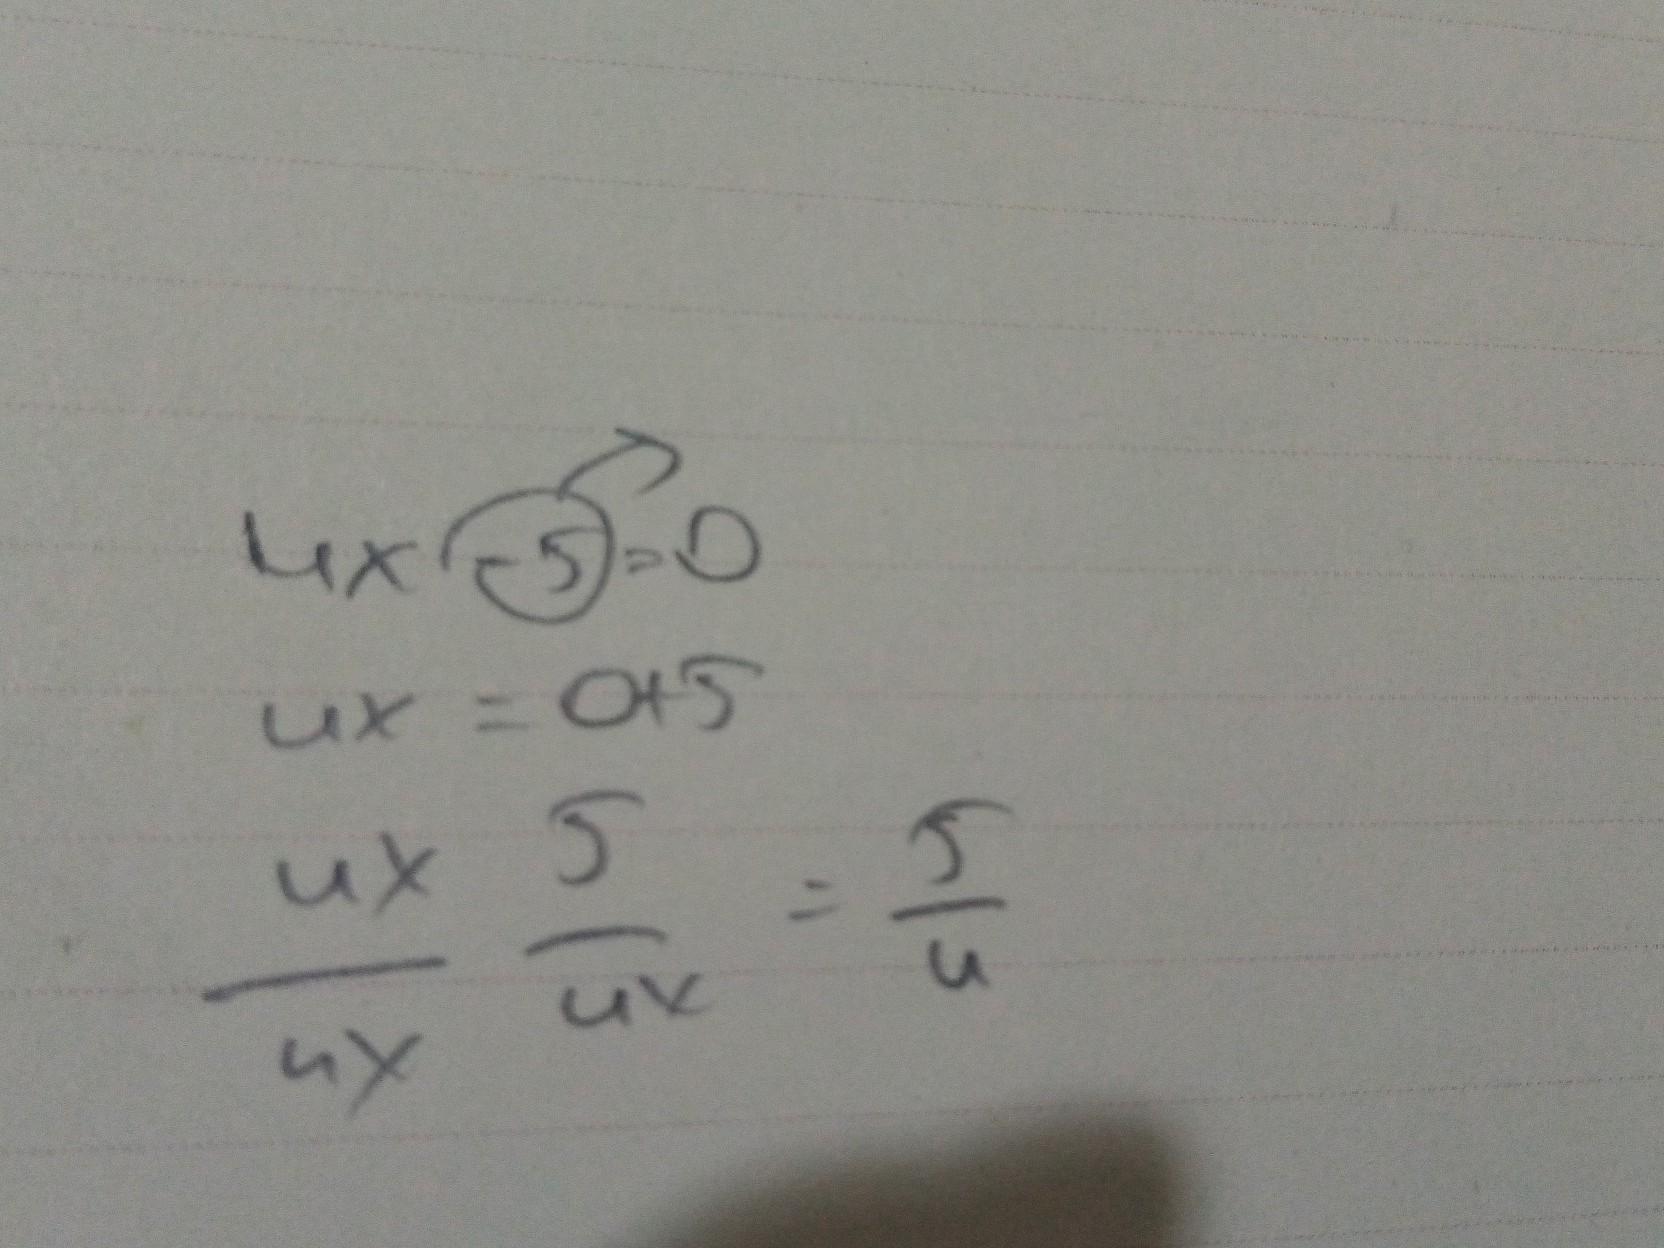 4x -5 = 0
4x = 0+5
4x/4x 5/4x = 5/4